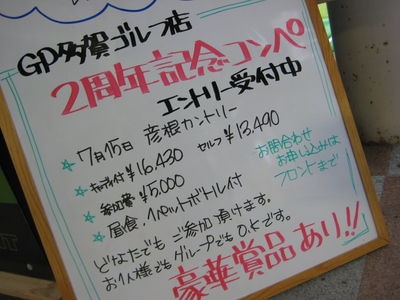 GP多賀ゴルフ店
2周年記念コンペ
エントリー受付中
★ 7月15日 彦根カントリー
★ キャディ付 ¥16,430 セルフ ¥13,490
参加費 ¥5,000
★ 昼食・1ペットボトル付
お問合わせ
お申し込みは
フロントまで
どなたでもご参加頂けます。
お1人様でもグループでもO.Kです。
豪華賞品あり!!